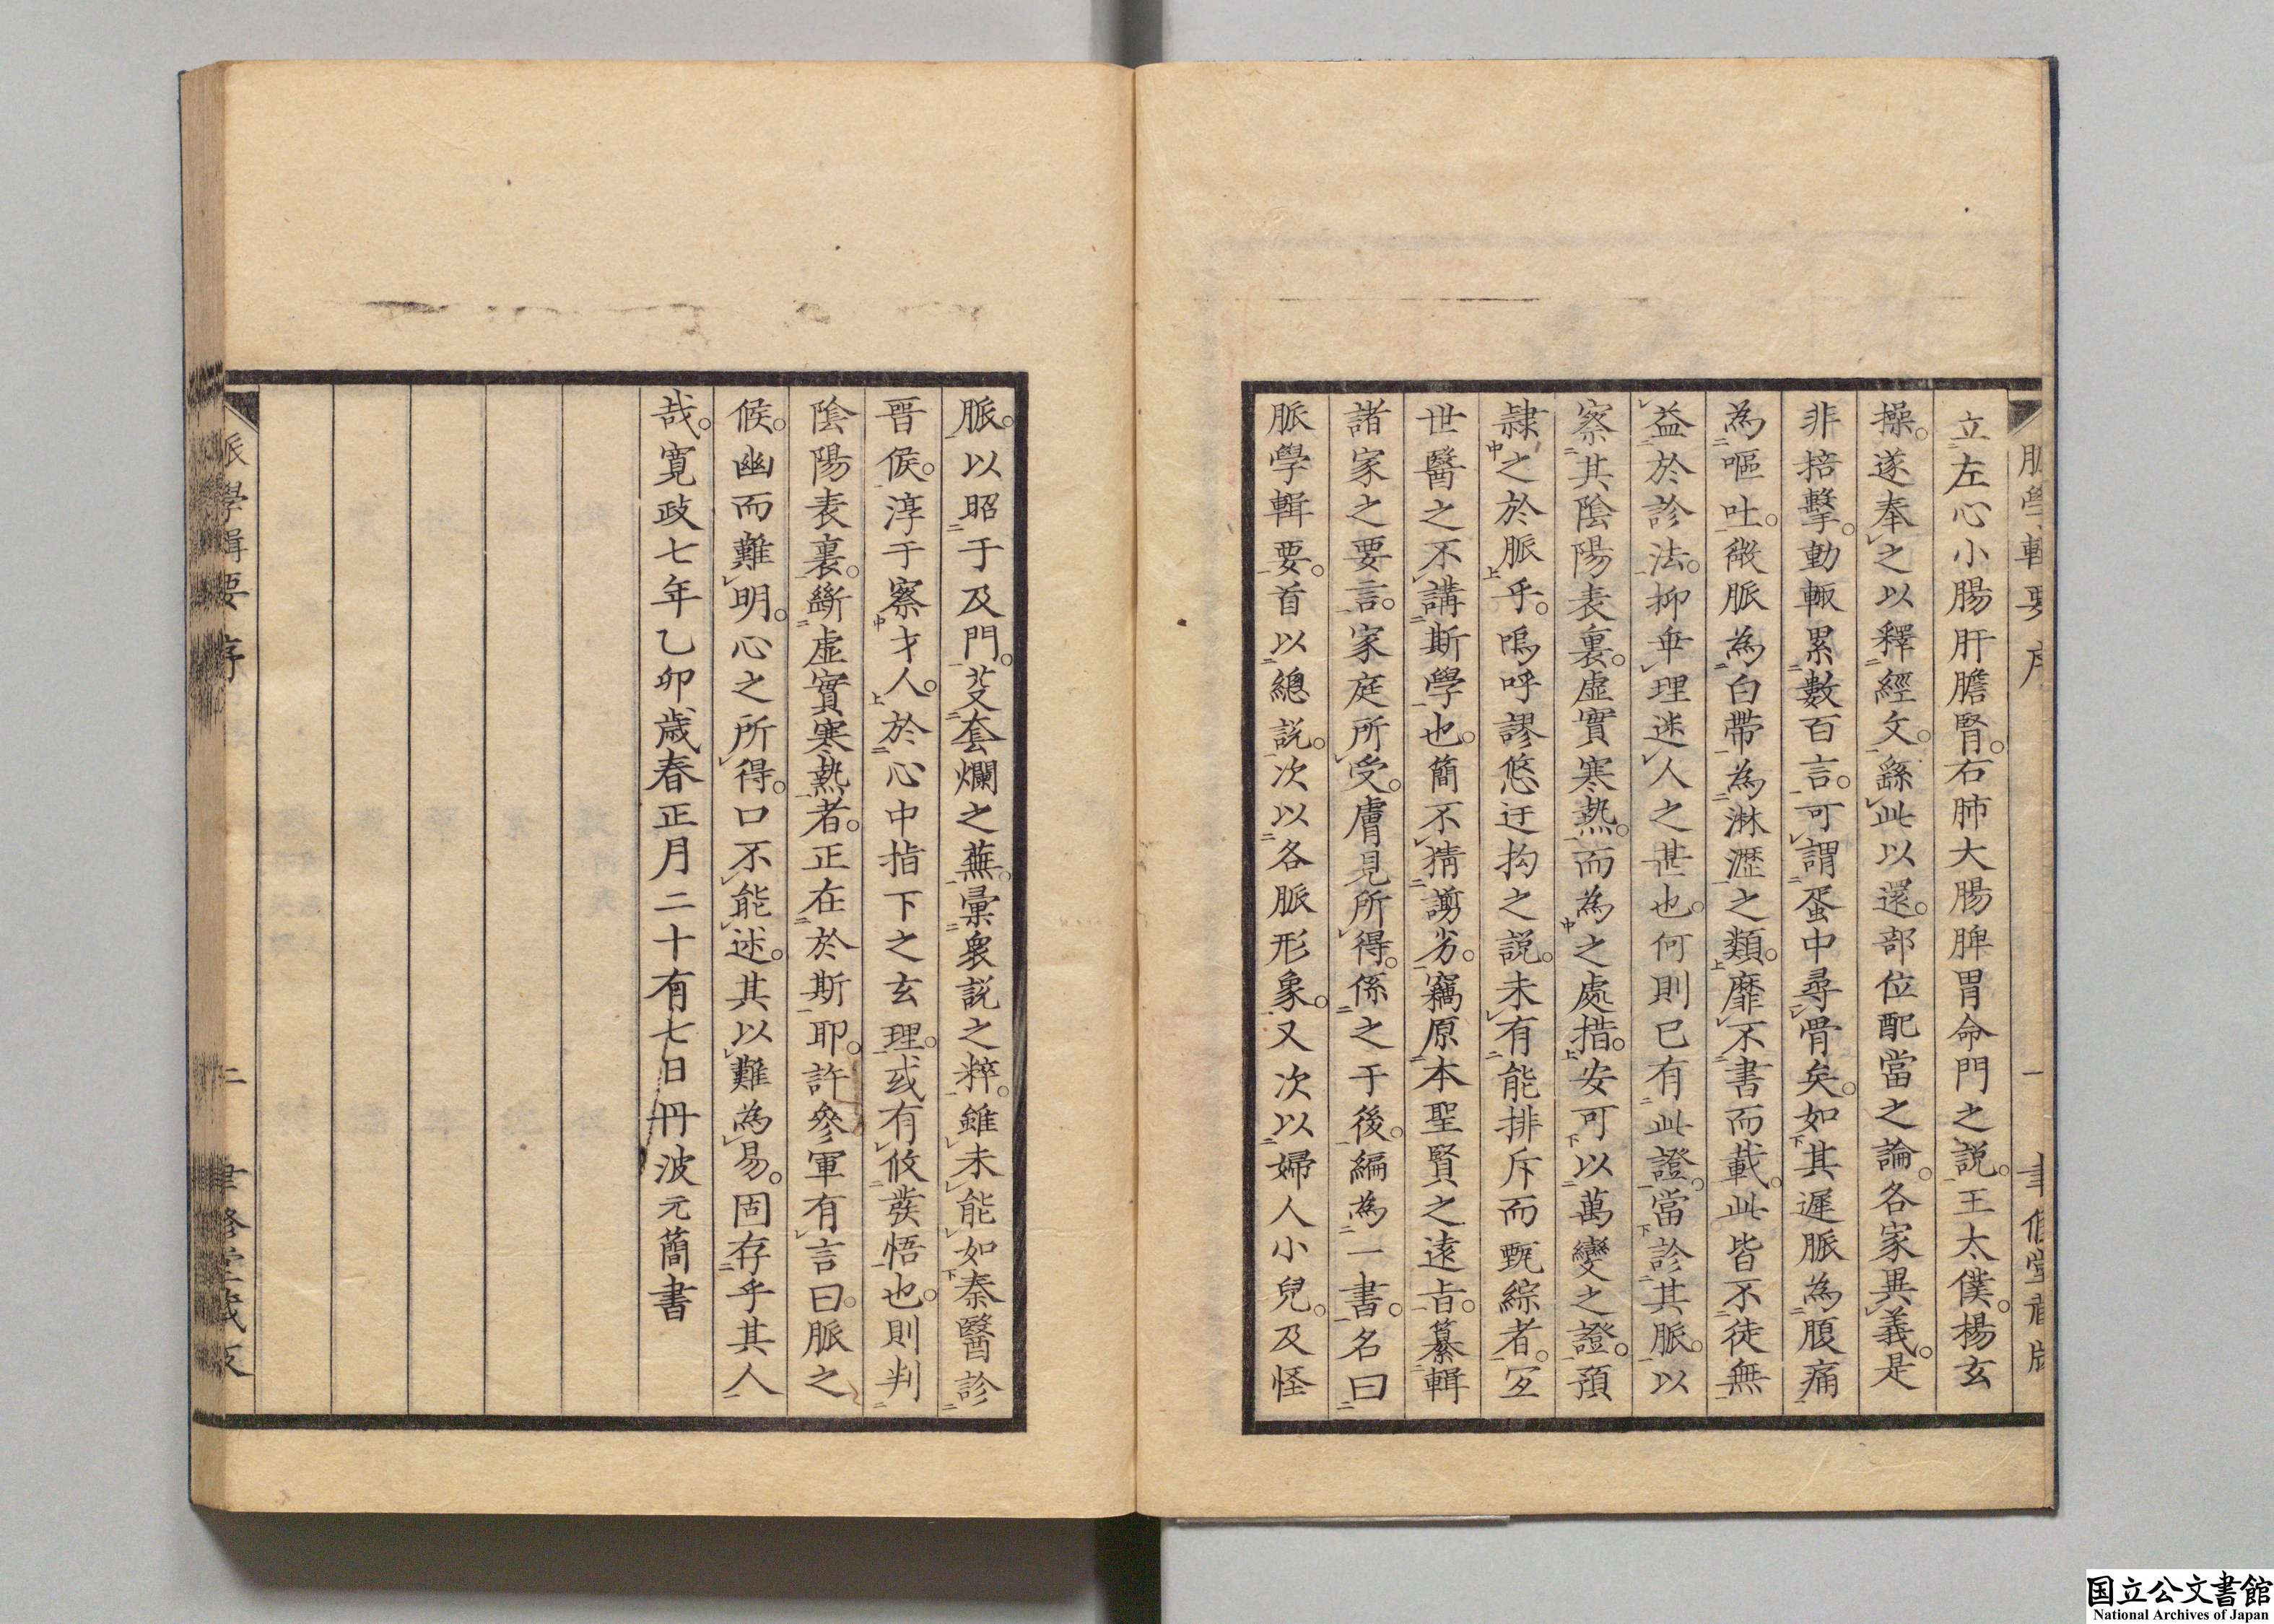 脈學輯要序 一 聿修堂藏版
立左心小腸肝膽腎。右肺大腸脾胃命門之説。王太僕。楊玄
操。遂奉之以釋經文。繇此以還。部位配當之論。各家異義。是
非掊擊。動輒累數百言。可謂蛋中尋骨矣。如其遲脈為腹痛
為嘔吐。微脈為白帶為淋瀝之類。靡不書而載。此皆不徒無
益於診法。抑乖理迷人之甚也。何則已有此證。當診其脈。以
察其陰陽表裏。虛實寒熱。而為之處措。安可以萬變之證。預
隷之於脈乎。嗚呼謬悠迂拘之説。未有能排斥而甄綜者。宜
世醫之不講斯學也。簡不猜謭劣。竊原本聖賢之遠旨。纂輯
諸家之要言。家庭所受。膚見所得。係之于後。編為一書。名曰
脈學輯要。首以總説。次以各脈形象。又次以婦人小兒。及怪
脈。以昭于及門。芟套爛之蕪。彙衆説之粹。雖未能如秦醫診
晋侯。淳于察才人。於心中指下之玄理。或有攸發悟也。則判
陰陽表裏。斷虛實寒熱者。正在於斯耶。許參軍有言曰。脈之
候。幽而難明。心之所得。口不能述。其以難為易。固存乎其人
哉。寬政七年乙卯歳春正月二十有七日丹波元簡書
脈學輯要 序 二 聿修堂藏版
国立公文書館
National Archives of Japan